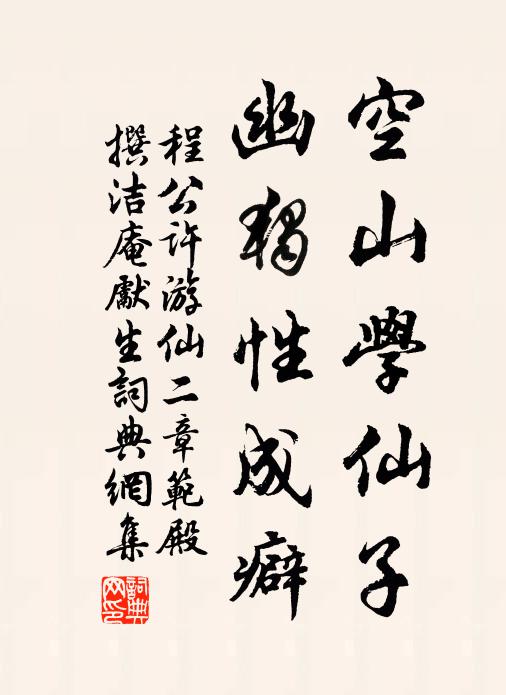 空山學仙子
幽獨性成癖
程公許游仙二章範殿
撰洁庵獻生詞典網集
詞典網印